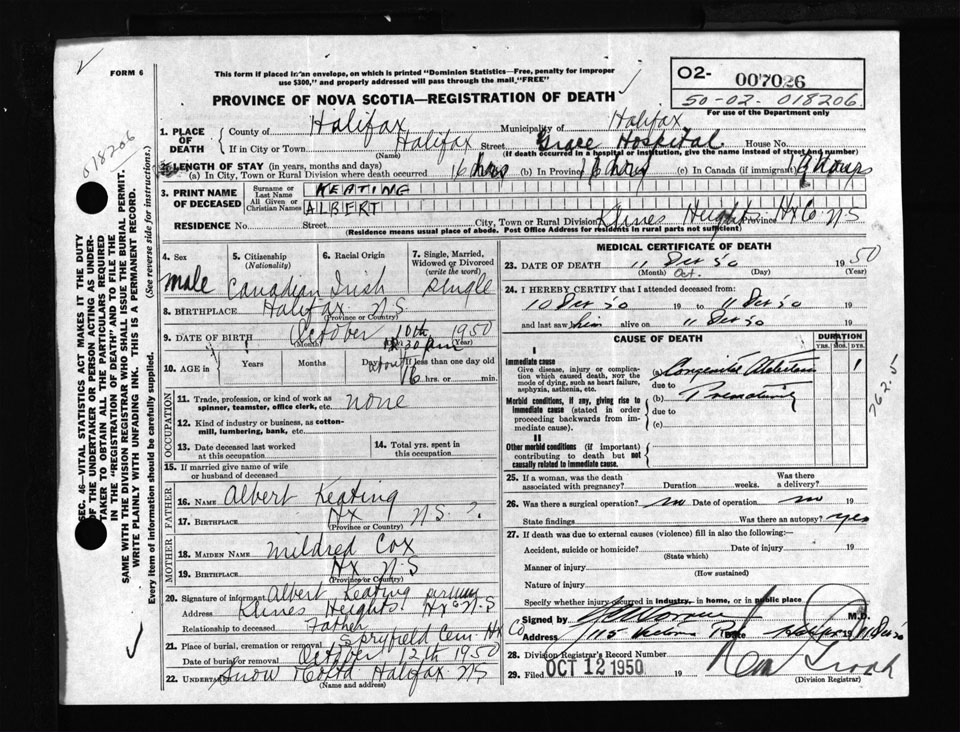 FORM 6
This form if placed in an envelope, on which is printed "Dominion Statistics—Free, penalty for improper
use $300," and properly addressed will pass through the mail "FREE"
PROVINCE OF NOVA SCOTIA—REGISTRATION OF DEATH
O2- 007026
50-02- 018206
For use of the Department only
018206
SEC. 46-VITAL STATISTICS ACT MAKES IT THE DUTY
OF THE UNDERTAKER OR PERSON ACTING AS UNDER-
TAKER TO OBTAIN ALL THE PARTICULARS REQUIRED
IN THE "REGISTRATION OF DEATH" AND TO FILE THE
SAME WITH THE DIVISION REGISTRAR WHO SHALL ISSUE THE BURIAL PERMIT.
WRITE PLAINLY WITH UNFADING INK. THIS IS A PERMANENT RECORD.
Every item of information should be carefully supplied. (See reverse side for instructions.)
1. PLACE OF DEATH County of Halifax Municipality of Halifax
If in City or Town Halifax Street Grace Hospital House No.
(Name) (If death occurred in a hospital or institution, give the name instead of street and number)
2. LENGTH OF STAY (in years, months and days)
(a) In City, Town or Rural Division where death occurred 16 hrs (b) In Province 16 hrs (c) In Canada (if immigrant) hours
3. PRINT NAME OF DECEASED Surname or Last Name KEATING
All Given or Christian Names ALBERT
RESIDENCE No. Street City, Town or Rural Division Klines Heights Province Hx Co. N.S
(Residence means usual place of abode. Post Office Address for residents in rural parts not sufficient)
4. Sex 5. Citizenship (Nationality) 6. Racial Origin 7. Single, Married, Widowed or Divorced (write the word)
Male Canadian Irish Single
8. BIRTHPLACE Halifax N.S
(Province or Country)
9. DATE OF BIRTH October 10th 1950
(Month) (Year)
10. AGE in Years Months Days about If less than one day old
16 hrs. or min.
OCCUPATION
11. Trade, profession, or kind of work as
spinner, teamster, office clerk, etc. none
12. Kind of industry or business, as cotton-
mill, lumbering, bank, etc.
13. Date deceased last worked at this occupation 14. Total yrs. spent in this occupation
15. If married give name of wife
or husband of deceased
FATHER
16. NAME Albert Keating
17. BIRTHPLACE Hx N.S.
(Province or Country)
MOTHER
18. MAIDEN NAME Mildred Cox
19. BIRTHPLACE Hx N.S
(Province or Country)
20. Signature of informant Albert Keating
Address Klines Heights Hx Co N.S
Relationship to deceased Father
21. Place of burial, cremation or removal Spryfield Cem. Hx
Date of burial or removal October 12th 1950
22. UNDERTAKER Snow Halifax NS
(Name and address)
MEDICAL CERTIFICATE OF DEATH
23. DATE OF DEATH 11 50 1950
(Month) Oct. (Day) (Year)
24. I HEREBY CERTIFY that I attended deceased from:
10 50 19 to 11 50 19
and last saw him alive on 11 50 19
CAUSE OF DEATH DURATION
YRS. MOS. DYS.
I
Immediate cause
Give disease, injury or complica-
tion which caused death, NOT the
mode of dying, such as heart failure,
asphyxia, asthenia, etc.
(a) Congenital Atelectasis 1
due to
Morbid conditions, if any, giving rise to
immediate cause (stated in order
proceeding backwards from im-
mediate cause).
(b) Prematurity
due to
(c)
762.5
II
Other morbid conditions (if important)
contributing to death but not
causally related to immediate cause.
25. If a woman, was the death associated with pregnancy? Duration weeks. Was there a delivery?
26. Was there a surgical operation? no Date of operation no 19
State findings Was there an autopsy? yes
27. If death was due to external causes (violence) fill in also the following:—
Accident, suicide or homicide? Date of injury 19
(State which)
Manner of injury
(How sustained)
Nature of injury
Specify whether injury occurred in industry, in home, or in public place
Signed by M.D.
Address 115 Date 19
28. Division Registrar's Record Number
29. Filed OCT 12 1950 19
(Division Registrar)